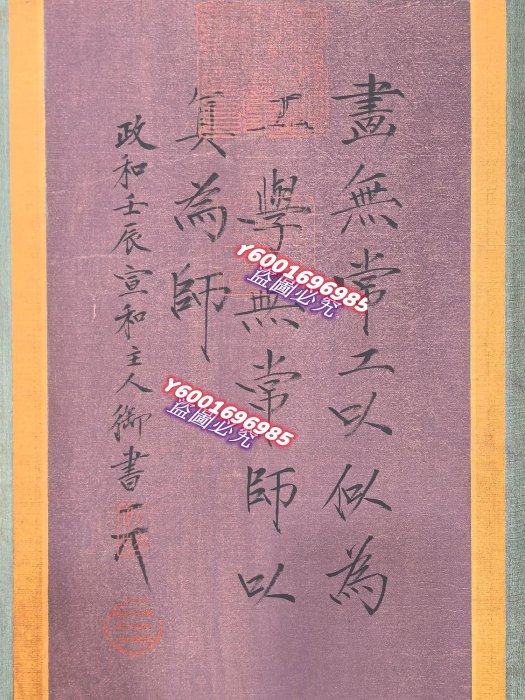 畫無常工以似為
工學無常師以
真為師
政和壬辰宣和主人御書
Y6001696985
盜圖必究
Y6001696985
盜圖必究